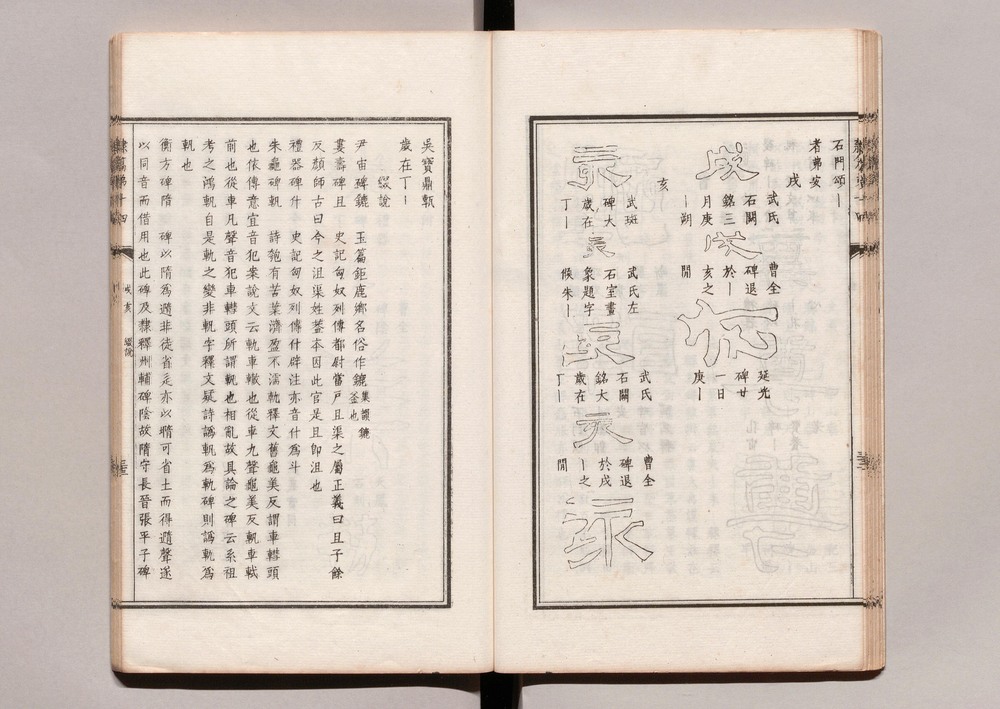 石門頌丨
者弗安
戌
武氏
石闕
銘三
月庚
丨朔
曹全
碑退
於丨
亥之
間
延光
碑廿
一日
庚丨
亥
武班
碑大
歲在
丁丨
武氏左
石室畫
象題字
候朱丨
武氏
石闕
銘大
歲在
丁丨
曹全
碑退
於戌
丨之
間
吳寶鼎甎
歲在丁丨
綴說
尹宙碑鏕 玉篇鉅鹿鄉名俗作鏕集韻鏕釜也
婁壽碑且 史記匈奴列傳都尉當戶且渠之屬正義曰且子餘
反顏師古曰今之沮渠姓葢本因此官是且卽沮也
禮器碑什 史記匈奴列傳什辟注亦音什為斗
朱龜碑軓 詩匏有苦葉濟盈不濡軌釋文舊龜美反謂車轊頭
也依傳意宜音犯案說文云軌車轍也從車九聲龜美反軓車軾
前也從車凡聲音犯車轊頭所謂軹也相亂故具論之碑云系祖
考之鴻軓自是軌之變非軓字釋文疑詩譌軓為軌碑則譌軌為
軓也
衡方碑隋 碑以隋為遀非徒省辵亦以隋可省土而得遀聲遂
以同音而借用也此碑及隸釋州輔碑陰故隋守長晉張平子碑
戌 亥
綴說